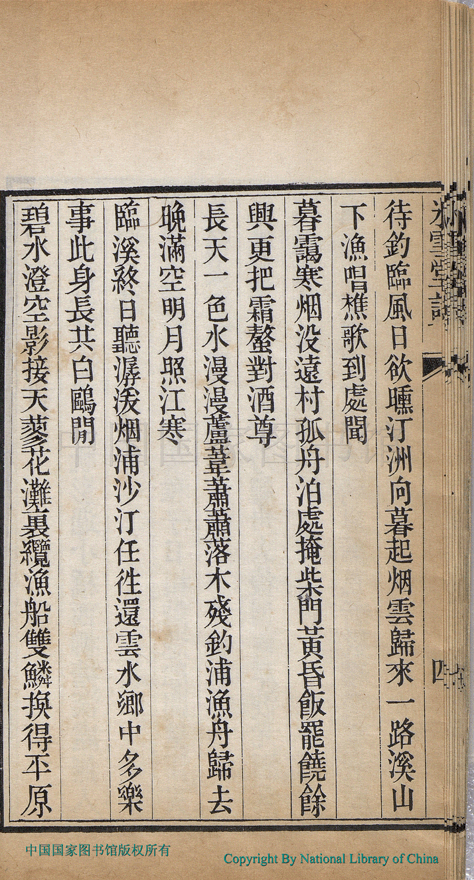 待釣臨風日欲曛汀洲向暮起烟雲歸來一路溪山
下漁唱樵歌到處聞
暮靄寒烟没遠村孤舟泊處掩柴門黃昏飯罷饒餘
興更把霜螯對酒尊
長天一色水漫漫蘆葦蕭蕭落木殘釣浦漁舟歸去
晚滿空明月照江寒
臨溪終日聽潺湲烟浦沙汀任徃還雲水鄉中多樂
事此身長共白鷗閒
碧水澄空影接天蓼花灘裏纜漁船雙鱗換得平原
四
中国国家图书馆
中国国家图书馆版权所有
Copyright By National Library of China